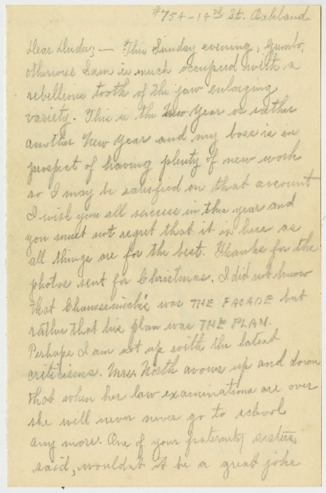 #754-14th St. Oakland
Dear Dinda; — This Sunday evening, Gumbo,
otherwise Sam is much occupied with a
rebellious tooth of the jaw enlarging
variety. This is the New Year or rather
another New Year and my boss is in
prospect of having plenty of new work
so I may be satisfied on that account
I wish you all success in this year and
you must not regret that it is here as
all things are for the best. Thanks for the
photos sent for Christmas. I did not know
that was THE FACADE but
rather that his plan was THE PLAN.
Perhaps I am not up with the latest
criticisms. Miss North avows up and down
that when her law examinations are over
she will never never go to school
any more. One of your fraternity sisters
said, wouldn't it be a great joke